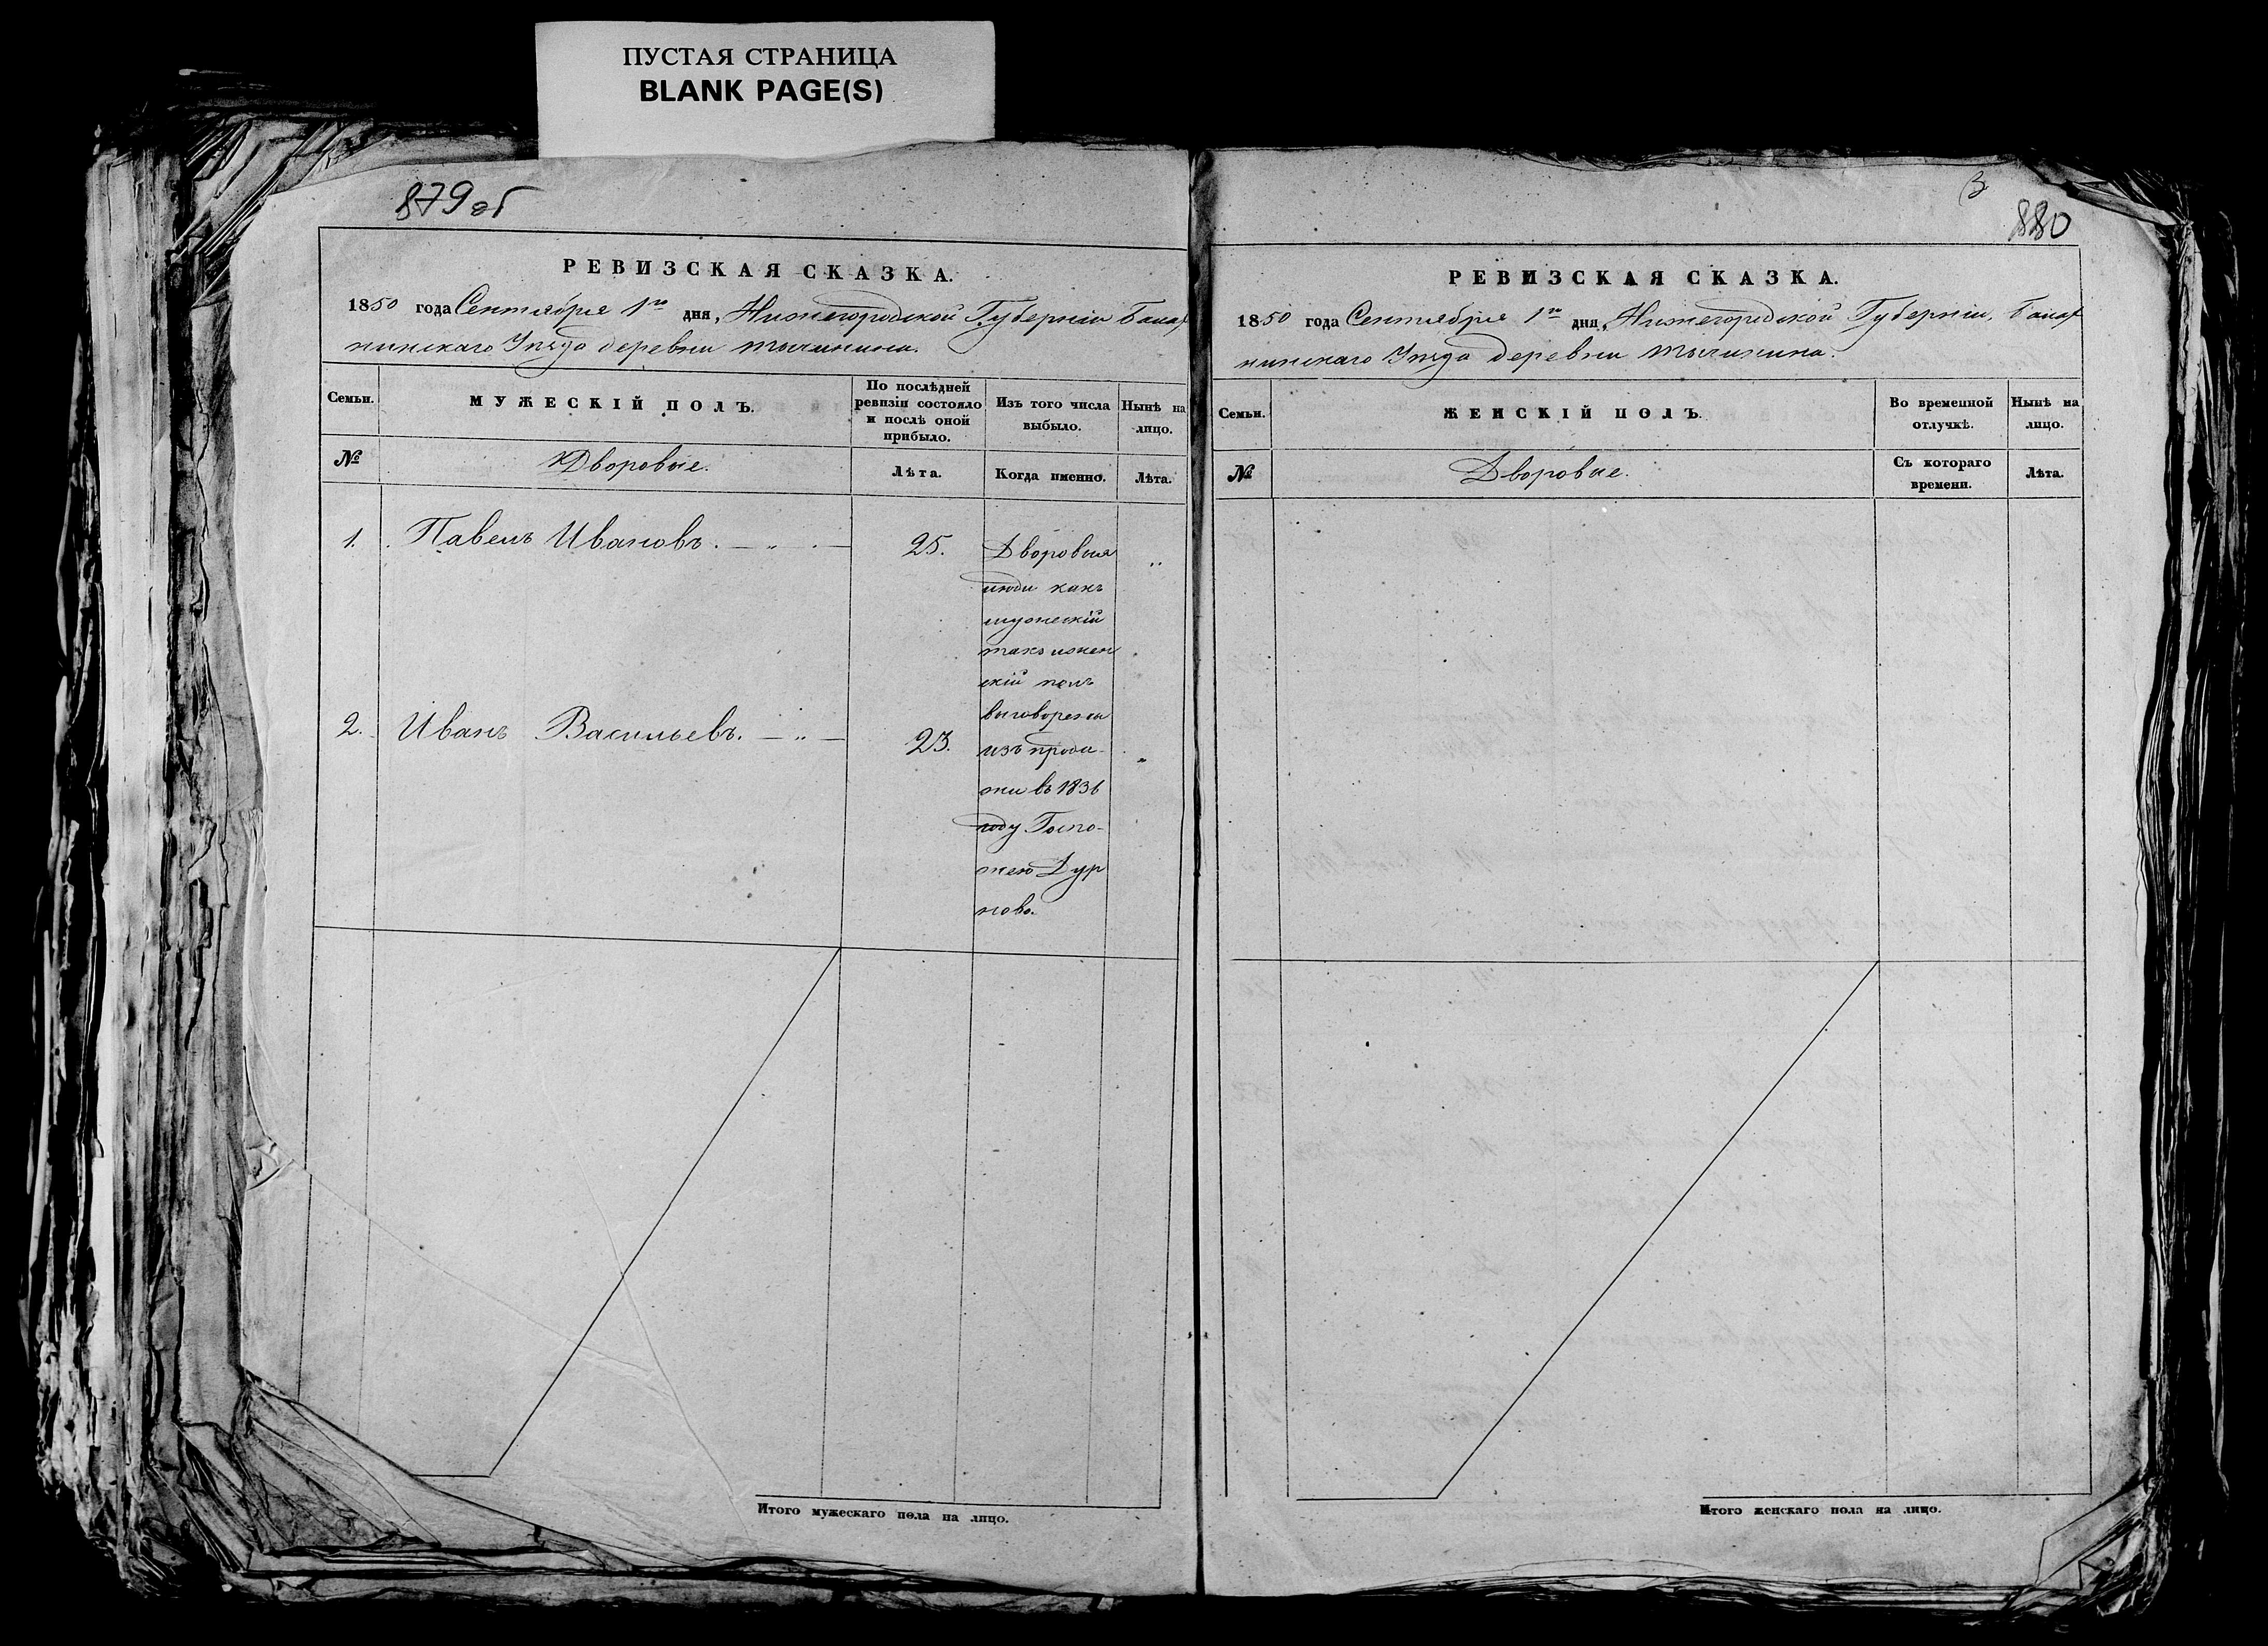 ПУСТАЯ СТРАНИЦА
BLANK PAGE(S)
879об
РЕВИЗСКАЯ СКАЗКА.
1850 года Сентября 1го дня, Нижегородской Губерніи Балах
нинскаго Уѣзда деревни Мытинина.
Семьи.
МУЖЕСКІЙ ПОЛЪ.
По послѣдней ревизіи состояло и послѣ оной прибыло.
Изъ того числа выбыло.
Нынѣ на лицо.
№
Дворовые.
Лѣта.
Когда именно.
Лѣта.
1. Павелъ Ивановъ. — „ — 25. „
2. Иванъ Васильевъ. — „ — 23. „
Дворовыя
люди какъ
мужескій
такъ и жен
скій полъ
выговорены
изъ прода-
жи въ 1836
году Госпо-
жею Дур
ново.
Итого мужескаго пола на лицо.
3
880
РЕВИЗСКАЯ СКАЗКА.
1850 года Сентября 1го дня, Нижегородской Губерніи, Балах
нинскаго Уѣзда деревни
Семьи.
ЖЕНСКІЙ ПОЛЪ.
Во временной отлучкѣ.
Нынѣ на лицо.
№
Дворовые.
Съ котораго времени.
Лѣта.
Итого женскаго пола на лицо.